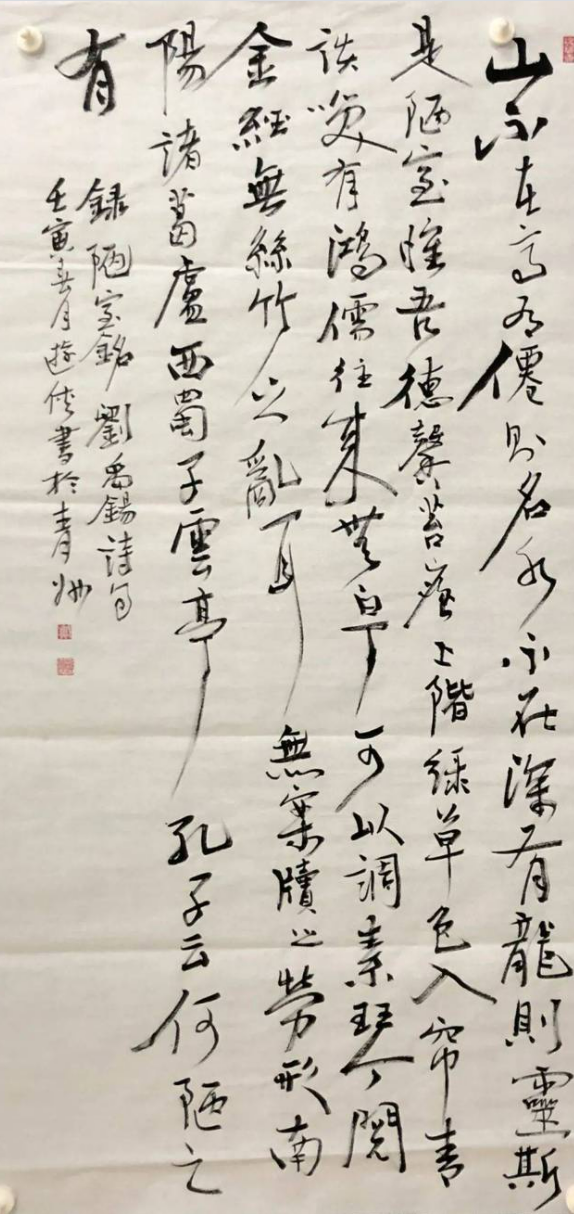 山不在高有僊則名水不在深有龍則靈斯
是陋室惟吾德馨苔痕上階綠草色入帘青
談笑有鴻儒往來無白丁可以調素琴閱
金經無絲竹之亂耳無案牘之勞形南
陽諸葛廬西蜀子雲亭孔子云何陋之
有
錄陋室銘劉禹錫詩句
壬寅春月遊俠書於青州